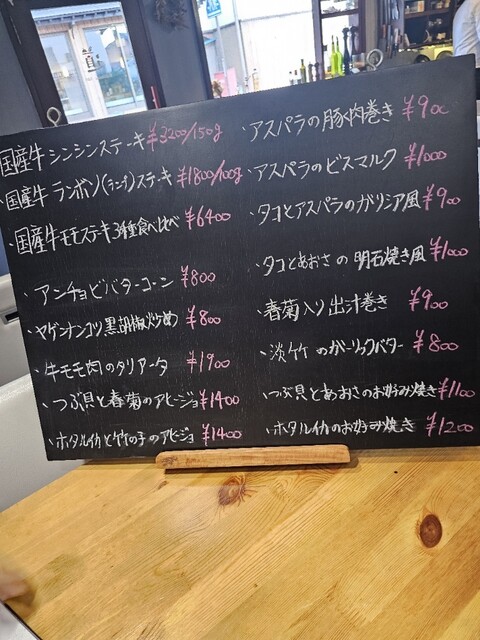 国産牛シンシンステーキ ¥3200/150g
・国産牛ランボソ(ランプ)ステーキ ¥1800/100g
・国産牛モモステーキ3種食べ比べ ¥6400
・アンチョビバターコーン ¥800
・ヤゲンナンコツ黒胡椒炒め ¥800
・牛モモ肉のタリアータ ¥1900
・つぶ貝と春菊のアヒージョ ¥1400
・ホタルイカと竹の子のアヒージョ ¥1400
・アスパラの豚肉巻き ¥900
・アスパラのビスマルク ¥1000
・タコとアスパラのガリシア風 ¥900
・タコとあおさの明石焼き風 ¥1000
・春菊入り出汁巻き ¥900
・淡竹のガーリックバター ¥800
・つぶ貝とあおさのお好み焼き ¥1100
・ホタルイカのお好み焼き ¥1200